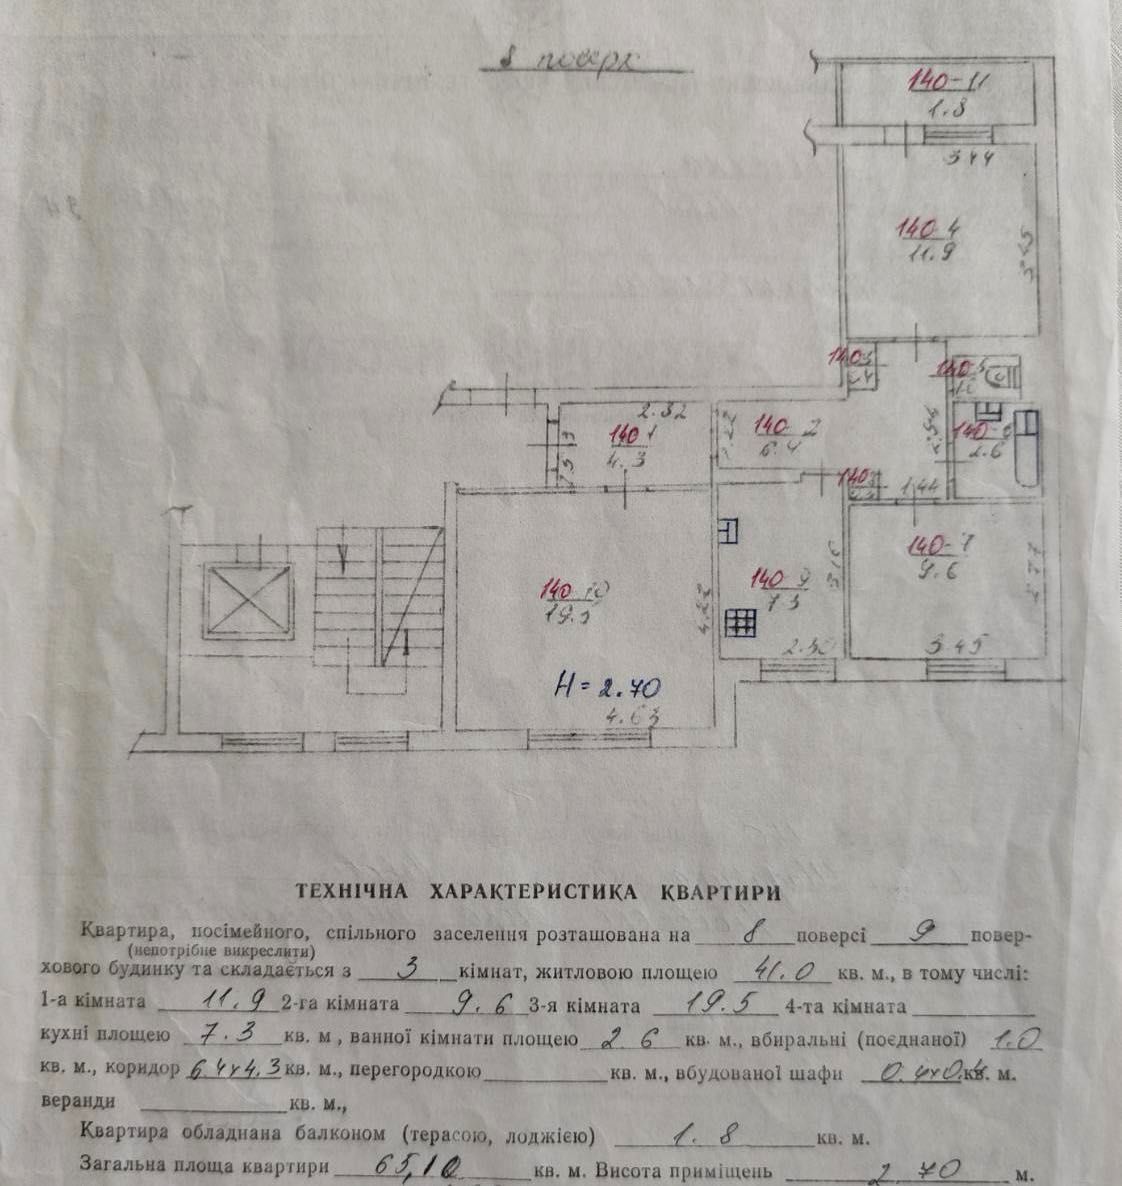 8 поверх
140-11
1.8
3.44
140 4
11.9
3.45
140 3
140-5
1.0
2.32
140 1
4.3
140-2
6.4
140
2.6
140
1.44
140-7
9.6
2.77
3.45
140 9
7.3
3.16
2.30
140 10
19.5
4.22
H = 2.70
4.63
ТЕХНІЧНА ХАРАКТЕРИСТИКА КВАРТИРИ
Квартира, посімейного, спільного заселення розташована на 8 поверсі 9 повер-
(непотрібне викреслити)
хового будинку та складається з 3 кімнат, житловою площею 41.0 кв. м., в тому числі:
1-а кімната 11.9 2-га кімната 9.6 3-я кімната 19.5 4-та кімната
кухні площею 7.3 кв. м, ванної кімнати площею 2 6 кв. м., вбиральні (поєднаної) 1.0
кв. м., коридор 6.4х4.3 кв. м., перегородкою кв. м., вбудованої шафи 0.4х0.4 кв. м.
веранди кв. м.,
Квартира обладнана балконом (терасою, лоджією) 1.8 кв. м.
Загальна площа квартири 65,10 кв. м. Висота приміщень 2 70 м.